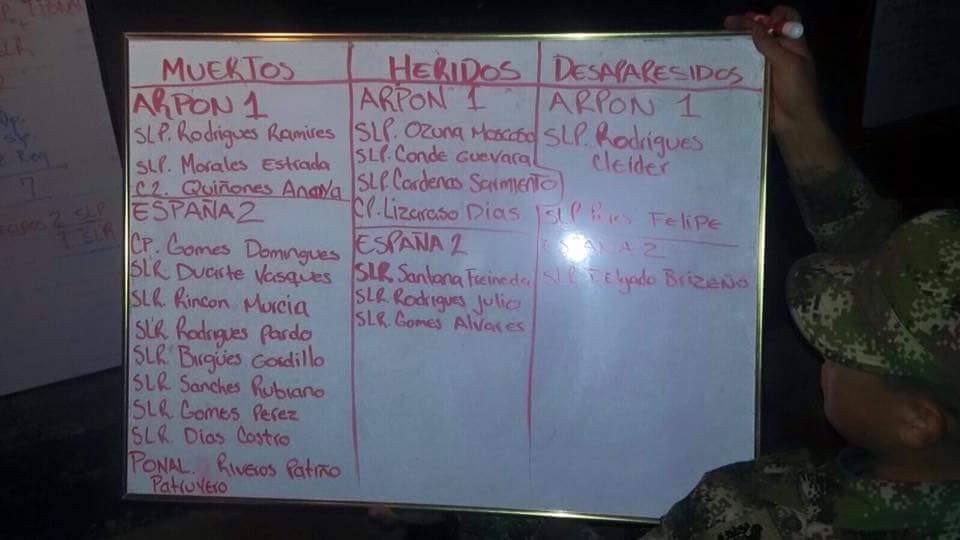 MUERTOS
ARPON 1
SLP. Rodrigues Ramires
SLP. Morales Estrada
C2. Quiñones Anaya
ESPAÑA 2
CP. Gomes Domingues
SLR. Duarte Vasques
SLR Rincon Murcia
SLR Rodrigues Pardo
SLR Birgües Gordillo
SLR Sanches Rubiano
SLR Gomes Perez
SLR Dias Castro
PONAL. Riveros Patiño
Patruyero
HERIDOS
ARPON 1
SLP. Ozuna Moscoso
SLP. Conde Guevara
SLP. Cardenas Sarmiento
CP. Lizaraso Dias
ESPAÑA 2
SLR. Santana
SLR. Rodrigues Julio
SLR. Gomes Alvares
DESAPARESIDOS
ARPON 1
SLP. Rodrigues
Cleider
SLP Felipe
ESPAÑA 2
SLR Delgado Brizeño
7
2 SLP
1 SLR